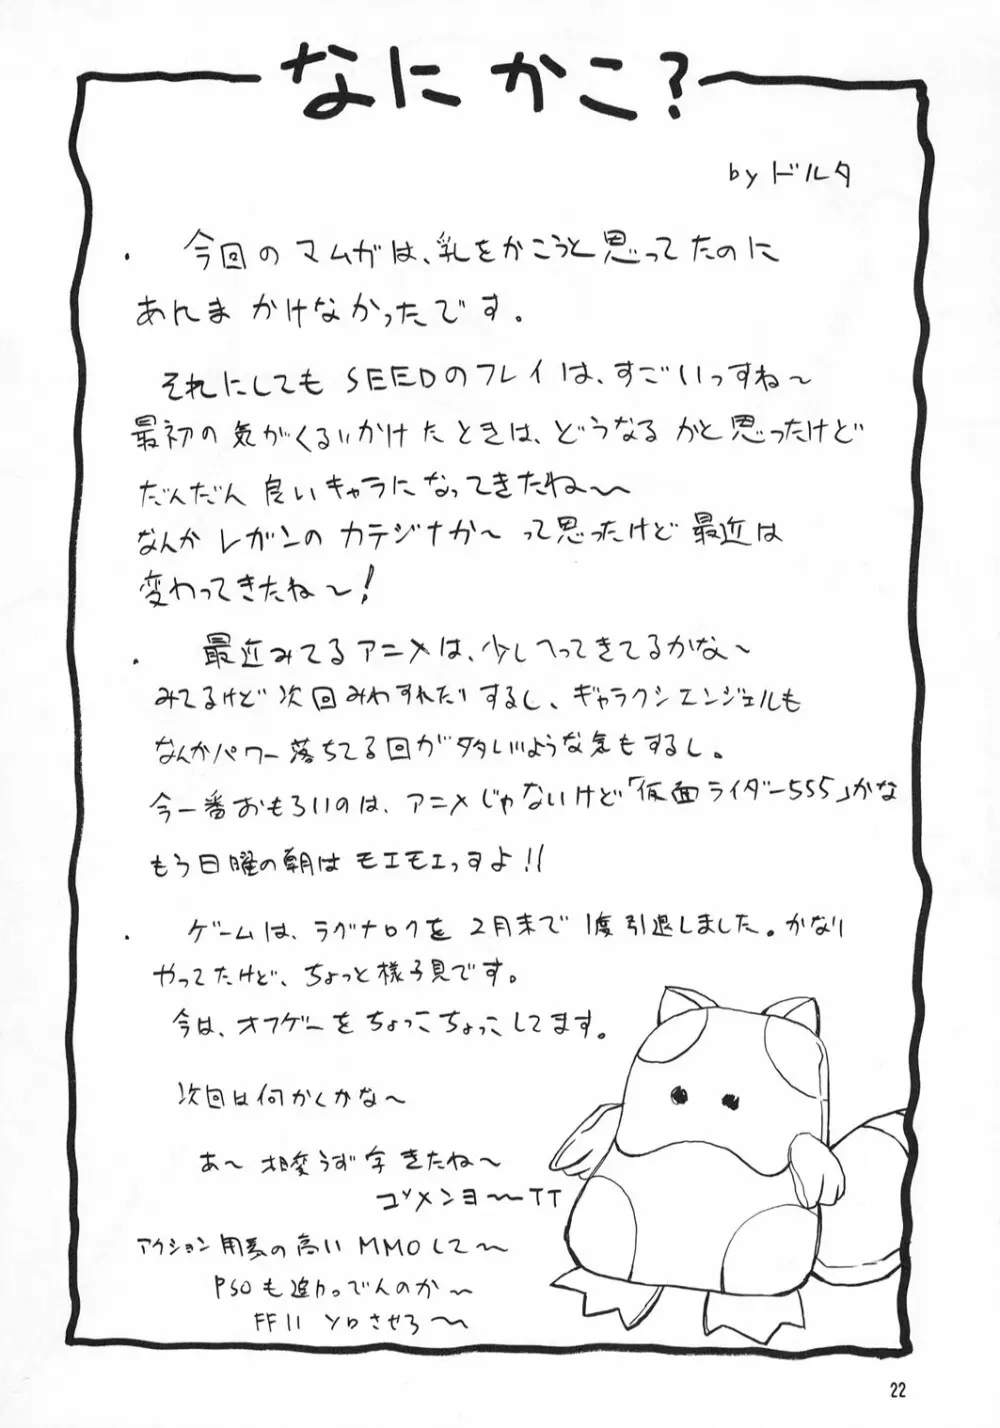 なにかこ?
by ドルタ
・ 今回のマムガは、乳をかこうと思ってたのに
あんま かけなかったです。
それにしてもSEEDのフレイは、すごいっすね〜
最初の気がくるいかけたときは、どうなるかと思ったけど
だんだん 良いキャラになってきたね〜
なんか レガンの カテジナか〜 って思ったけど 最近は
変わってきたね〜!
・ 最近みてるアニメは、少しへってきてるかな〜
みてるけど 次回みわすれたりするし、ギャラクシエンジェルも
なんかパワー落ちてる回が多いような気もするし。
今一番おもろいのは、アニメじゃないけど「仮面ライダー555」かな
もう日曜の朝は モエモエっすよ!!
・ ゲームは、ラグナロクを 2月末で 1度引退しました。かなり
やってたけど、ちょっと様子見です。
今は、オフゲーをちょっこちょっこしてます。
次回は何かくかな〜
あ〜 相変うず字きたね〜
ゴメンヨ〜TT
アクション 用素の高い MMOして〜
PSOも追かっでんのか〜
FF11 ソロさせろ〜
22